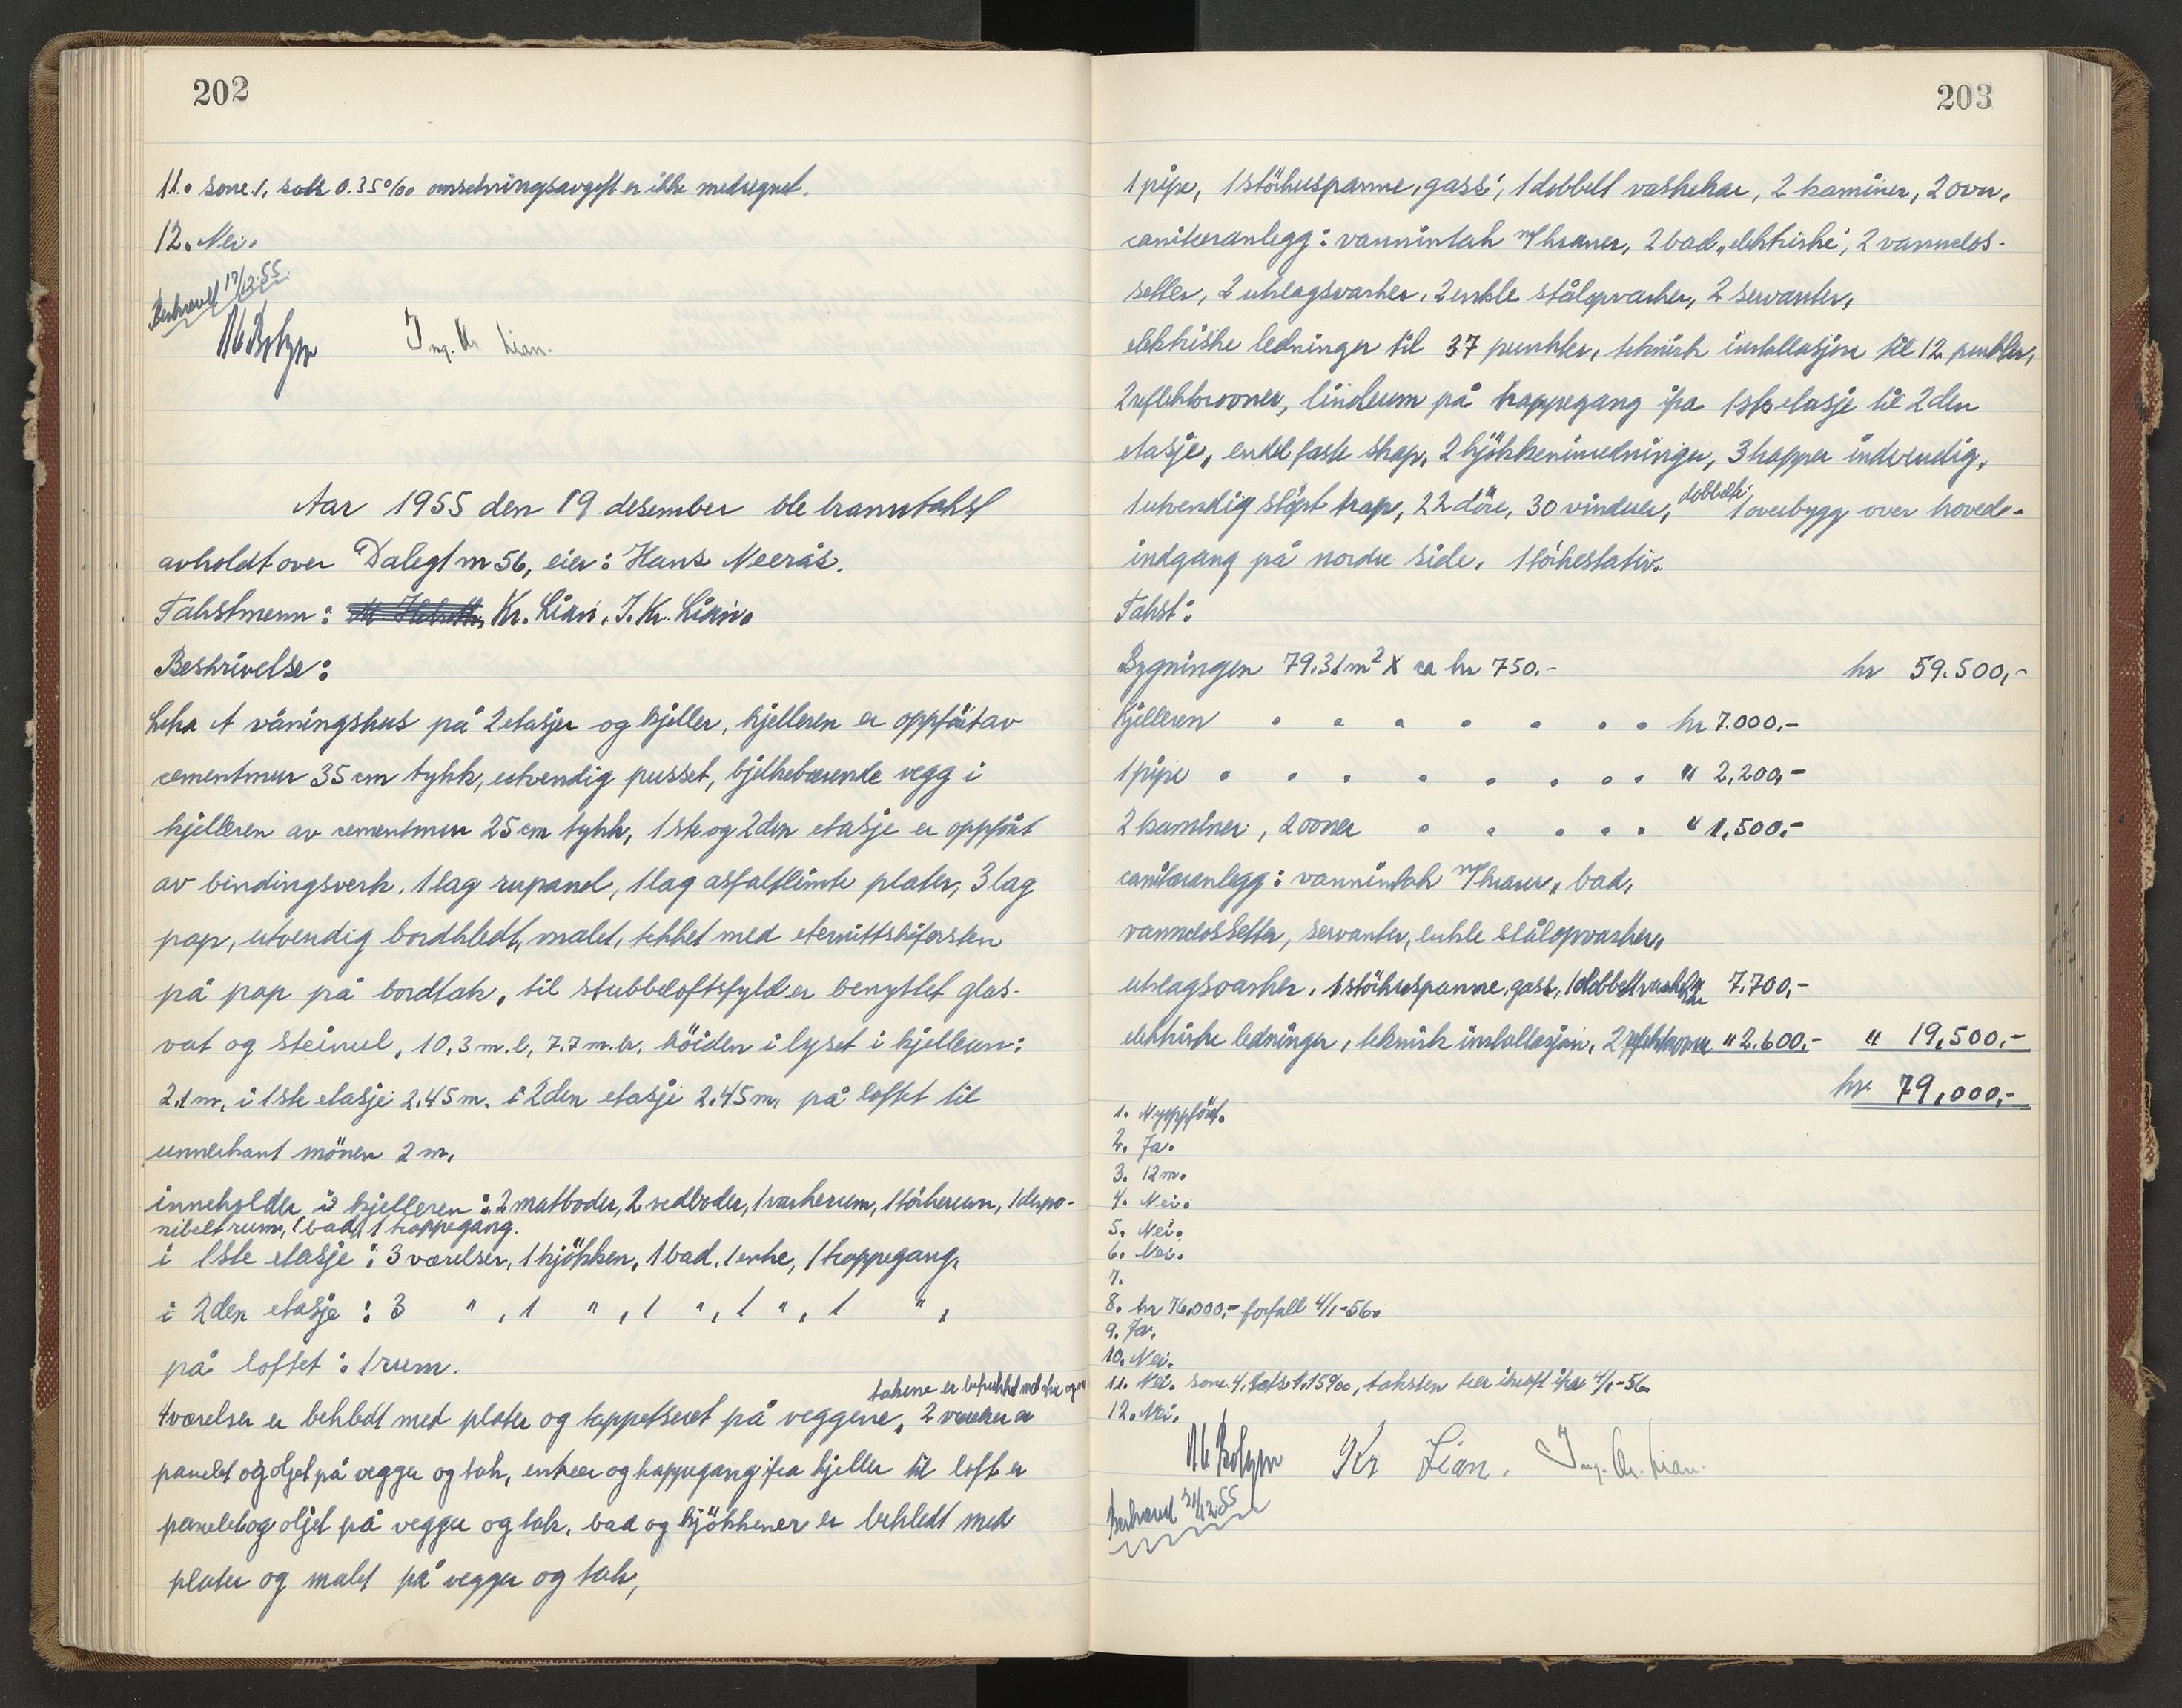 202
11. sone 1, sats 0.35 ‰ omsetningsavgift er ikke medregnet.
12. Nei.
Beskrevet 19/12-55
Ing. Kr. Lian.
Aar 1955 den 19 desember ble branntakst
avholdt over Dalegt nr 56, eier: Hans Neerås.
Takstmenn: Kr. Lian, I. Kr. Lian.
Beskrivelse:
Litra A våningshus på 2 etasjer og kjeller, kjelleren er oppfört av
cementmur 35 cm tykk, utvendig pusset, bjelkebærende vegg i
kjelleren av cementmur 25 cm tykk, 1ste og 2den etasje er oppfört
av bindingsverk, 1 lag rupanel, 1 lag asfaltlimte plater, 3 lag
pap, utvendig bordkledt, malet, tekket med eternittskifersten
på pap på bordtak, til stubbeloftsfyld er benyttet glas-
vat og steinul, 10,3 m. l, 7.7 m. br. höiden i lyset i kjelleren:
2.1 m, i 1ste etasje 2.45 m. i 2den etasje 2.45 m, på loftet til
unnerkant mönen 2 m,
inneholder i kjelleren: 2 matboder, 2 vedboder, 1 vaskerum, 1 törkerum, 1 dispo-
nibelt rum, 1 bad, 1 trappegang.
i 1ste etasje: 3 værelser, 1 kjökken, 1 bad, 1 entre, 1 trappegang,
i 2den etasje: 3 " , 1 " , 1 " , 1 " , 1 " ,
på loftet: 1 rum.
takene er
4 værelser er bekledt med plater og tappetseret på veggene, 2 værelser er
panelet og oljet på vegger og tak, entreer og trappegang ifra kjeller til loft er
panelet og oljet på vegger og tak, bad og kjökkener er bekledt med
plater og malet på vegger og tak,
203
1 pipe, 1 störhuspanne, gass, 1 dobbelt vaskekar, 2 kaminer, 2 ovn,
saniteranlegg: vanninntak m/kraner, 2 bad, elektriske, 2 vannclos-
setter, 2 utslagsvasker, 2 enkle stålopvasker, 2 servanter,
elektriske ledninger til 37 punkter, teknisk installasjon til 12 punkter,
2 reflektorovner, linoleum på trappegang ifra 1ste etasje til 2den
etasje, endel faste skap, 2 kjökkeninnredninger, 3 trapper indvendig,
1 utvendig stöpt trap, 22 döre, 30 vinduer, dobbelte, 1 overbygg over hoved-
indgang på nordre side, 1 törkestativ.
Takst:
Bygningen 79.31 m² X ca kr 750.- kr 59.500,-
Kjelleren . . . . . . . . kr 7.000,-
1 pipe . . . . . . . . . " 2,200,-
2 kaminer, 2 ovner . . . . . " 1,500,-
sanitæranlegg: vanninntak m/kraner, bad,
vannclossetter, servanter, enkle stålopvasker,
utslagsvasker, 1 störhuspanne, gass, 1 dobbelt vaskekar " 7.700,-
elektriske ledninger, teknisk installasjon, 2 reflektorovner " 2.600,- " 19,500,-
kr 79,000,-
1. Nyoppfört.
2. Ja.
3. 12 m.
4. Nei.
5. Nei.
6. Nei.
7.
8. kr 76.000,- forfall 4/1-56.
9. Ja.
10. Nei.
11. Nei. sone 4, sats 1.15 ‰, taksten trer ikraft ifra 4/1-56.
12. Nei.
Kr Lian. Ing. Kr. Lian.
Beskrevet 21/12-55